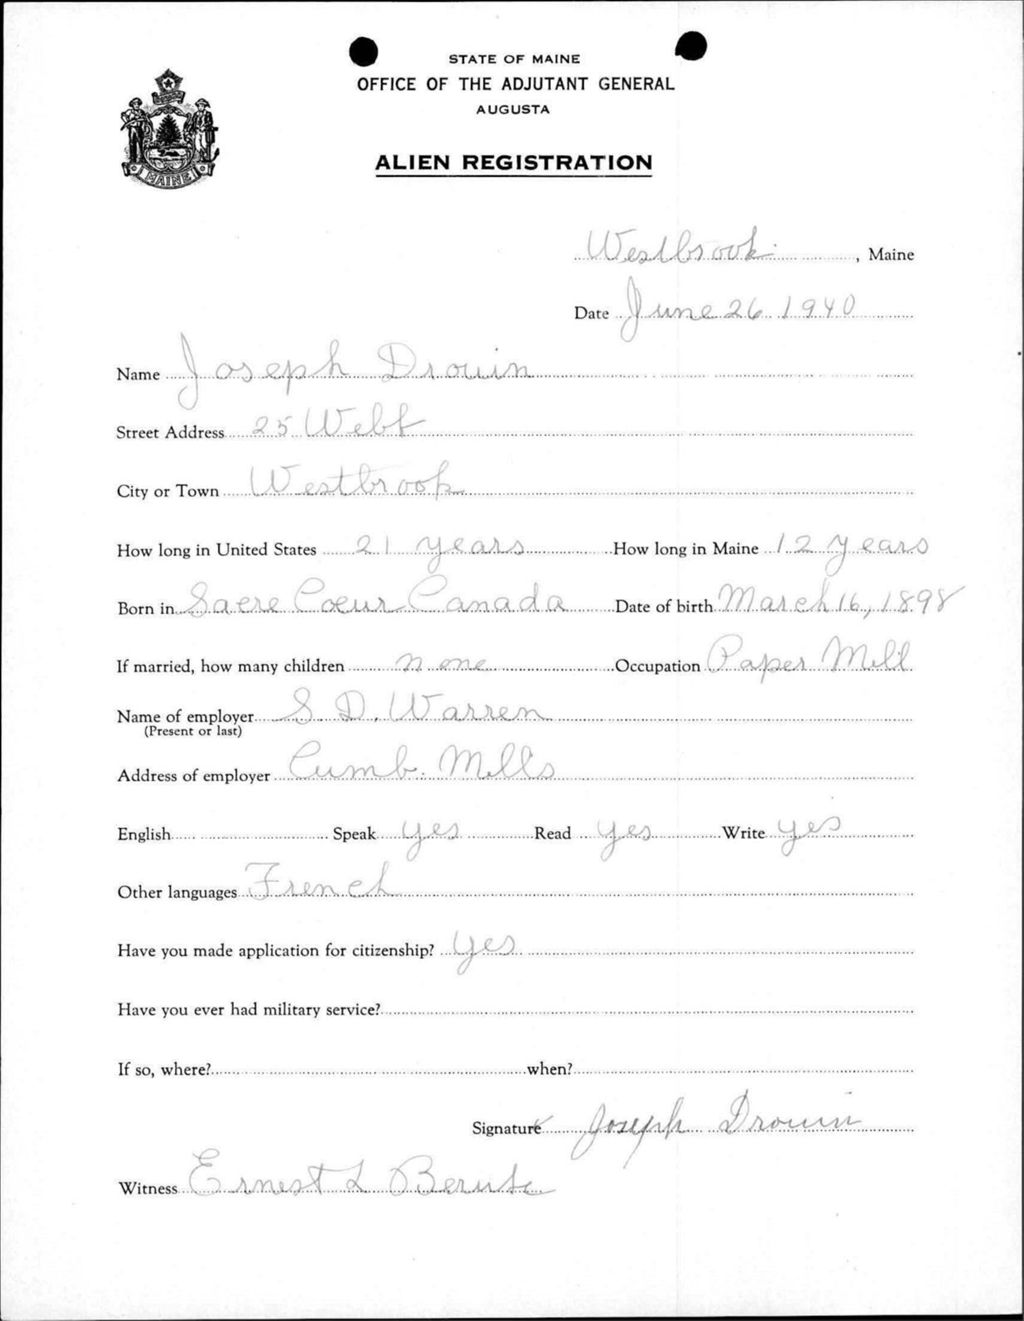 STATE OF MAINE
OFFICE OF THE ADJUTANT GENERAL
AUGUSTA
ALIEN REGISTRATION
MAINE
Westbrook, Maine
Date June 26 1940
Name Joseph Drouin
Street Address 25 Webt
City or Town Westbrook
How long in United States 21 years How long in Maine 12 years
Born in Sacre Coeur Canada Date of birth March 16, 1898
If married, how many children none Occupation Paper Mill
Name of employer S. D. Warren
(Present or last)
Address of employer Cumb. Mills
English Speak yes Read yes Write yes
Other languages French
Have you made application for citizenship? yes
Have you ever had military service?
If so, where? when?
Signature Joseph Drouin
Witness Ernest L